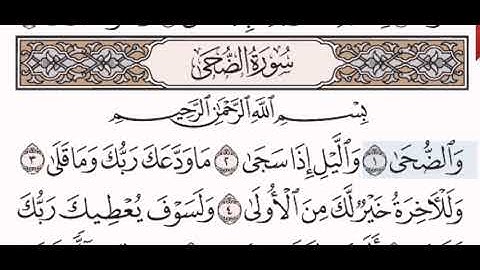 سُورَةُ الضُّحَىٰ
بِسْمِ اللَّهِ الرَّحْمَٰنِ الرَّحِيمِ
وَالضُّحَىٰ ١ وَاللَّيْلِ إِذَا سَجَىٰ ٢ مَا وَدَّعَكَ رَبُّكَ وَمَا قَلَىٰ ٣
وَلَلْآخِرَةُ خَيْرٌ لَّكَ مِنَ الْأُولَىٰ ٤ وَلَسَوْفَ يُعْطِيكَ رَبُّكَ